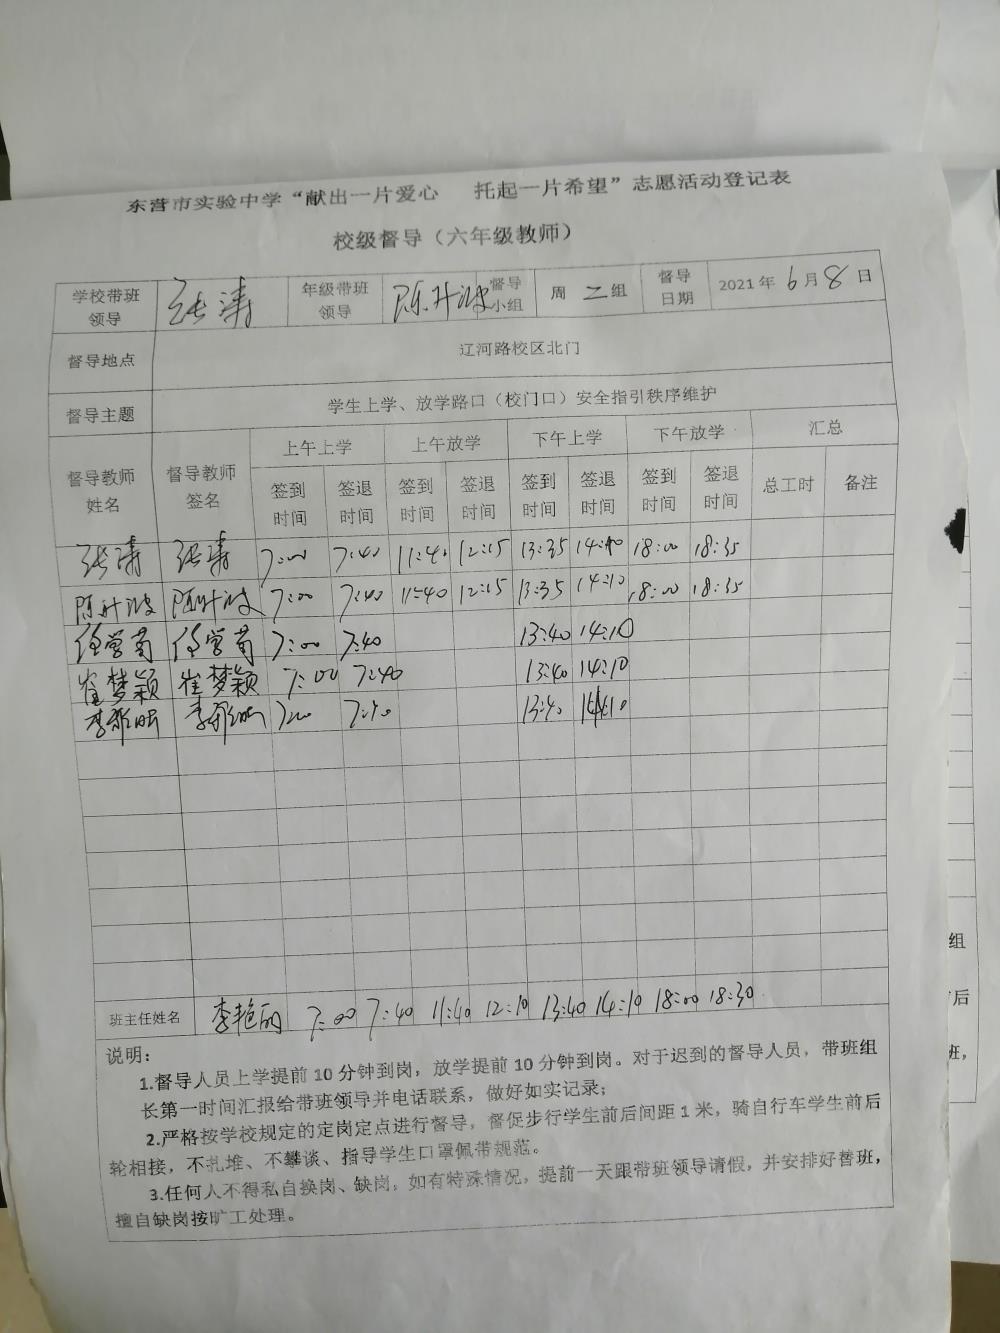 东营市实验中学“献出一片爱心 托起一片希望”志愿活动登记表
校级督导（六年级教师）
学校带班领导 张涛 年级带班领导 陈升波 督导小组 周二组 督导日期 2021年6月8日
督导地点 辽河路校区北门
督导主题 学生上学、放学路口（校门口）安全指引秩序维护
督导教师姓名 督导教师签名 上午上学 上午放学 下午上学 下午放学 汇总
签到时间 签退时间 签到时间 签退时间 签到时间 签退时间 签到时间 签退时间 总工时 备注
张涛 张涛 7:00 7:40 11:40 12:15 13:35 14:10 18:00 18:35
陈升波 陈升波 7:00 7:40 11:40 12:15 13:35 14:10 18:00 18:35
7:00 7:40 13:40 14:10
崔梦颖 崔梦颖 7:00 7:40 13:40 14:10
7:00 7:40 13:40 14:10
班主任姓名 李艳丽 7:00 7:40 11:40 12:10 13:40 14:10 18:00 18:30
说明：
1.督导人员上学提前10分钟到岗，放学提前10分钟到岗。对于迟到的督导人员，带班组
长第一时间汇报给带班领导并电话联系，做好如实记录；
2.严格按学校规定的定岗定点进行督导，督促步行学生前后间距1米，骑自行车学生前后
轮相接，不扎堆、不攀谈、指导学生口罩佩带规范。
3.任何人不得私自换岗、缺岗，如有特殊情况，提前一天跟带班领导请假，并安排好替班，
擅自缺岗按旷工处理。
组
后
班，